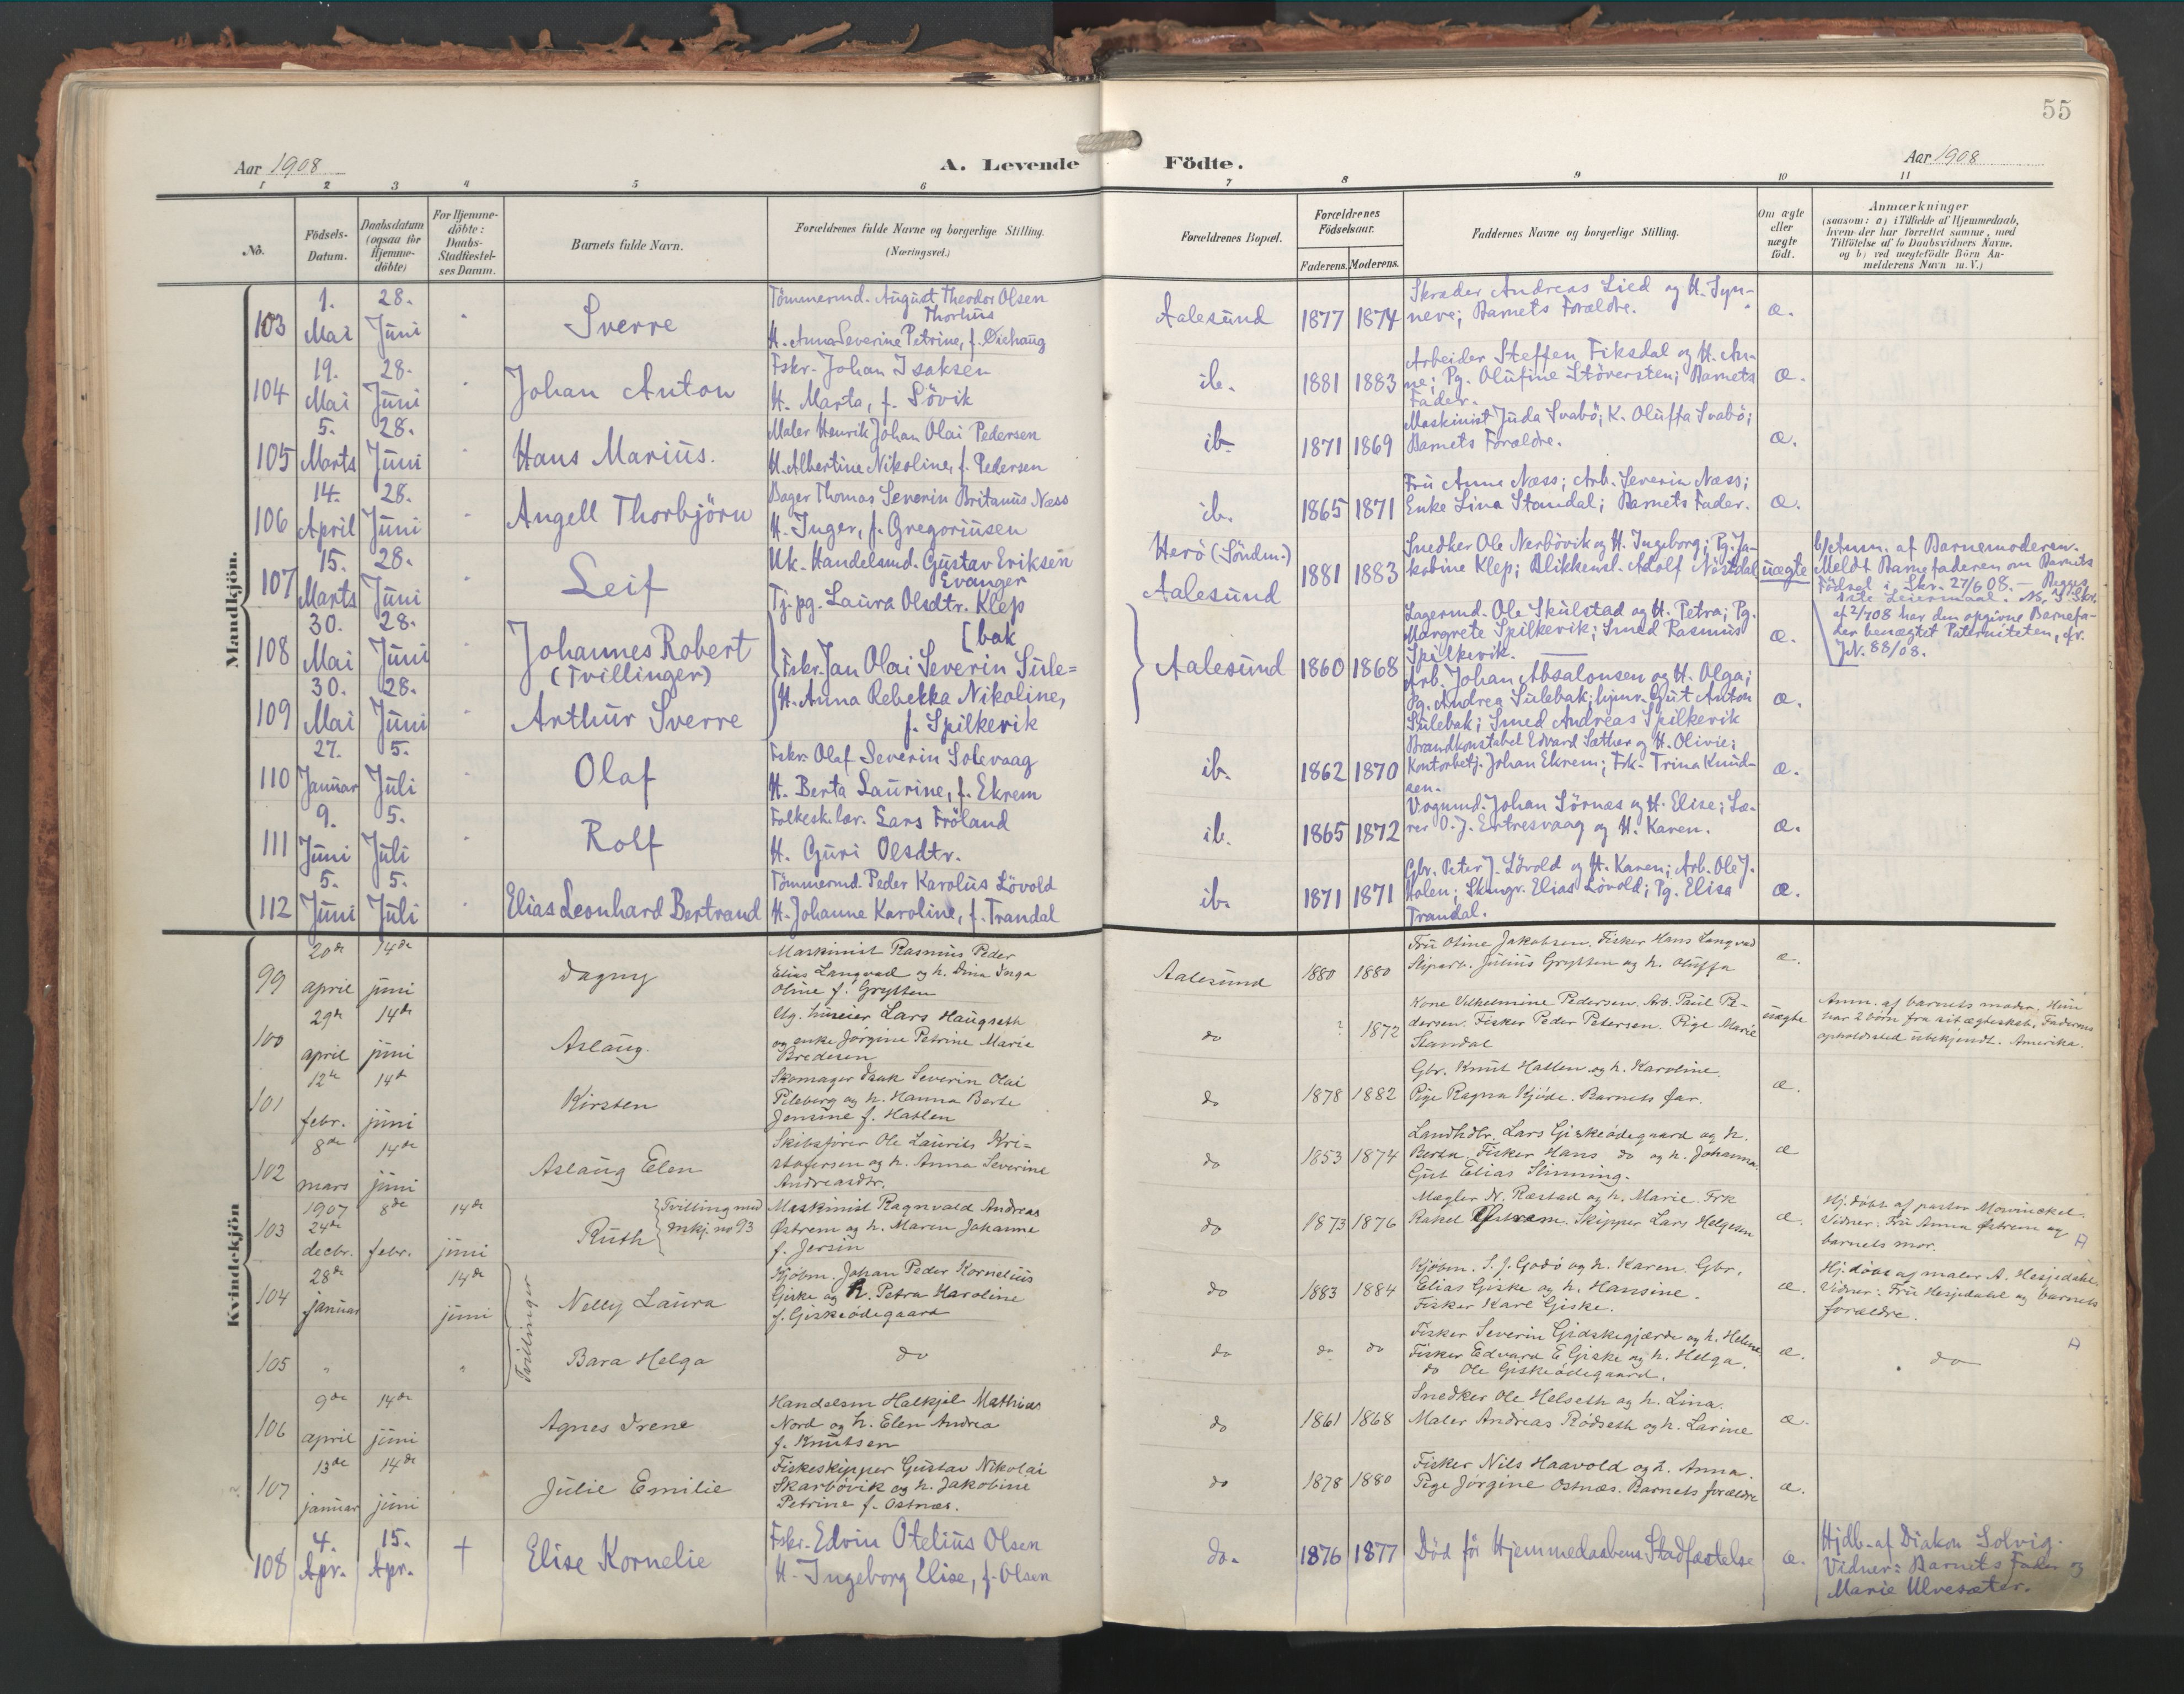 55
Aar 1908
A. Levende Födte.
Aar 1908
1 2 3 4 5 6 7 8 9 10 11
No.
Födsels-
Datum.
Daabsdatum
(ogsaa for
Hjemme-
döbte)
For Hjemme-
döbte:
Daabs-
Stadfæstel-
ses Datum.
Barnets fulde Navn.
Forældrenes fulde Navne og borgerlige Stilling.
(Næringsvei.)
Forældrenes Bopæl.
Forældrenes
Födselsaar.
Faderens. Moderens.
Faddernes Navne og borgerlige Stilling.
Om ægte
eller
uægte
födt.
Anmærkninger
(saasom: a) i Tilfælde af Hjemmedaab,
hvem der har forrettet samme, med
Tilföielse af to Daabsvidners Navne,
og b) ved uægtefödte Börn An-
melderens Navn m. V.)
Mandkjön.
103
1.
Mai
28.
Juni
Sverre
Tömmermd. August Theodor Olsen
Thorhus
H. Anna Severine Petrine, f. Öiehaug
Aalesund
1877 1874
Skræder Andreas Lied og H. Syn-
neve; Barnets Forældre.
æ.
104
19.
Mai
28.
Juni
Johan Anton
Fskr. Johan Isaksen
H. Marta, f. Lövik
ib.
1881 1883
Arbeider Steffen Fiksdal og H. An-
ne; Pg. Olufine Stöversten; Barnets
Fader.
æ.
105
5.
Marts
28.
Juni
Hans Marius.
Maler Henrik Johan Olai Pedersen
H. Albertine Nikoline, f. Pedersen
ib.
1871 1869
Maskinist Juda Svabö; K. Oluffa Svabö;
Barnets Forældre.
æ.
106
14.
April
28.
Juni
Angell Thorbjörn
Bager Thomas Severin Britanus Næss
H. Inger, f. Gregoriusen
ib.
1865 1871
Fru Anne Næss; Arb. Severin Næss;
Enke Lina Standal; Barnets Fader.
æ.
107
15.
Marts
28.
Juni
Leif
Uk. Handelsmd. Gustav Eriksen
Evanger
Tj. pg. Laura Olsdtr. Klep
Herö (Söndm.)
Aalesund
1881 1883
Snedker Ole Nerbövik og H. Ingeborg; Pg. Ja-
kobine Klep; Blikkensl. Adolf Nerdal
uægte
b/Anm. af Barnemoderen.
Meldt Barnefaderen om Barnets
Födsel i Skr. 27/6 08. — Begges
1ste Leiermaal. No. I Skr.
af 2/7 08 har den opgivne Barnefa-
der benægtet Paterniteten, cfr.
JN. 88/08.
108
30.
Mai
28.
Juni
Johannes Robert
(Tvillinger)
[bak
Fskr. Jan Olai Severin Sule=
Aalesund
1860 1868
Lagermd. Ole Skulstad og H. Petra; Pg.
Margrete Spilkevik; Smed Rasmus
Spilkevik.
æ.
109
30.
Mai
28.
Juni
Arthur Sverre
H. Anna Rebekka Nikoline,
f. Spilkevik
Arb. Johan Absalonsen og H. Olga;
Pg. Andrea Sulebak; Gut Anton
Sulebak; Smed Andreas Spilkevik
æ.
110
27.
Januar
5.
Juli
Olaf
Fskr. Olaf Severin Solevaag
H. Berta Laurine, f. Ekrem
ib.
1862 1870
Brandkonstabel Edvard Sæther og H. Olivie;
Kontorbetj. Johan Ekrem; Frk. Trina Knud-
sen.
æ.
111
9.
Juni
5.
Juli
Rolf
Folkesk.lær. Lars Fröland
H. Guri Olsdtr.
ib.
1865 1872
Vognmd. Johan Sörnæs og H. Elise; Læ-
rer O. J. Ertresvaag og H. Karen.
æ.
112
5.
Juni
5.
Juli
Elias Leonhard Bertrand
Tömmermd. Peder Karolus Lövold
H. Johanne Karoline, f. Trandal
ib.
1871 1871
Gbr. Peter J. Lövold og H. Karen; Arb. Ole J.
Holen; Elias Lövold; Pg. Elisa
Trandal.
æ.
Kvindekjön
99
20de
april
14de
juni
Dagny
Maskinist Rasmus Peder
Elias Langvad og h. Dina Inga
Oline f. Grytten
Aalesund
1880 1880
Fru Oline Jakobsen. Fisker Hans Langvad
Julius Grytten og h. Oluffa
æ.
100
29de
april
14de
juni
Aslaug.
Ug. huseier Lars Haugseth
og enke Jørgine Petrine Marie
Bredesen
do
? 1872
Kone Vilhelmine Pedersen. Arb. Paul Pe-
dersen. Fisker Peder Petersen. Pige Marie
Standal
uægte
Anm. af barnets moder. Hun
har 2 børn fra sit ægtesksb. Faderens
opholdssted ubekjendt. Amerika.
101
12te
febr.
14de
juni
Kirsten
Skomager Isak Severin Olai
Pileberg og h. Hanna Berte
Jensine f. Hatlen
do
1878 1882
Gbr. Knut Hatlen og h. Karoline.
Pige Ragna Kjøde. Barnets far.
æ.
102
8de
mars
14de
juni
Aslaug Elen
Skibsfører Ole Laurits Kri=
stofersen og h. Anna Severine
Andreasdtr.
do
1853 1874
Landhdlr. Lars Giskeødegaard og h.
Berta. Fisker Hans do og h. Johanna.
Gut Elias Slinning.
æ
103
1907
24de
decbr.
8de
febr.
14de
juni
Ruth
Tvilling med
mkj. no 93
Maskinist Ragnvald Andreas
Østrem og h. Maren Johanne
f. Jersin
do
1873 1876
Mægler N. Ræstad og h. Marie. Frk
Rakel Østrem. Skipper Lars Helgesen
æ.
Hj. døbt af pastor Mowinckel.
Vidner: Fru Anna Østrem og
barnets mor.
104
28de
januar
14de
juni
Tvillinger
Nelly Laura
Kjøbm. Johan Peder Kornelius
Giske og h. Petra Karoline
f. Giskeødegaard
do
1883 1884
Kjøbm. S. J. Godø og h. Karen. Gbr.
Elias Giske og h. Hansine.
Fisker Karl Giske.
æ.
Hj. døbt af maler A. Hesjedahl.
Vidner: Fru Hesjedahl og barnets
forældre.
105
"
"
Bara Helga
do
do
do do
Fisker Severin Gidskegjærde og h. Helene
Fisker Edvard E Giske og h. Helga.
do Ole Giskeødegaard.
æ.
do
106
9de
april
14de
juni
Agnes Irene
Handelsm Halkjel Mathias
Nord og h. Elen Andrea
f. Knutsen
do
1861 1868
Snedker Ole Helseth og h. Lina.
Maler Andreas Rødseth og h. Larine
æ.
107
13de
januar
14de
juni
Julie Emilie
Fiskeskipper Gustav Nikolai
Skarbövik og h. Jakobine
Petrine f. Ostnæs.
do
1878 1880
Fisker Nils Haavold og h. Anna.
Pige Jørgine Ostnæs. Barnets forældre
æ.
108
4.
Apr.
15.
Apr.
†
Elise Kornelie
Fskr. Edvin Otelius Olsen
H. Ingeborg Elise, f. Olsen
do.
1876 1877
Död för Hjemmedaabens Stadfæstelse
æ.
Hjdb. af Diakon Solvig.
Vidner: Barnets Fader og
Marie Ulvesæter.